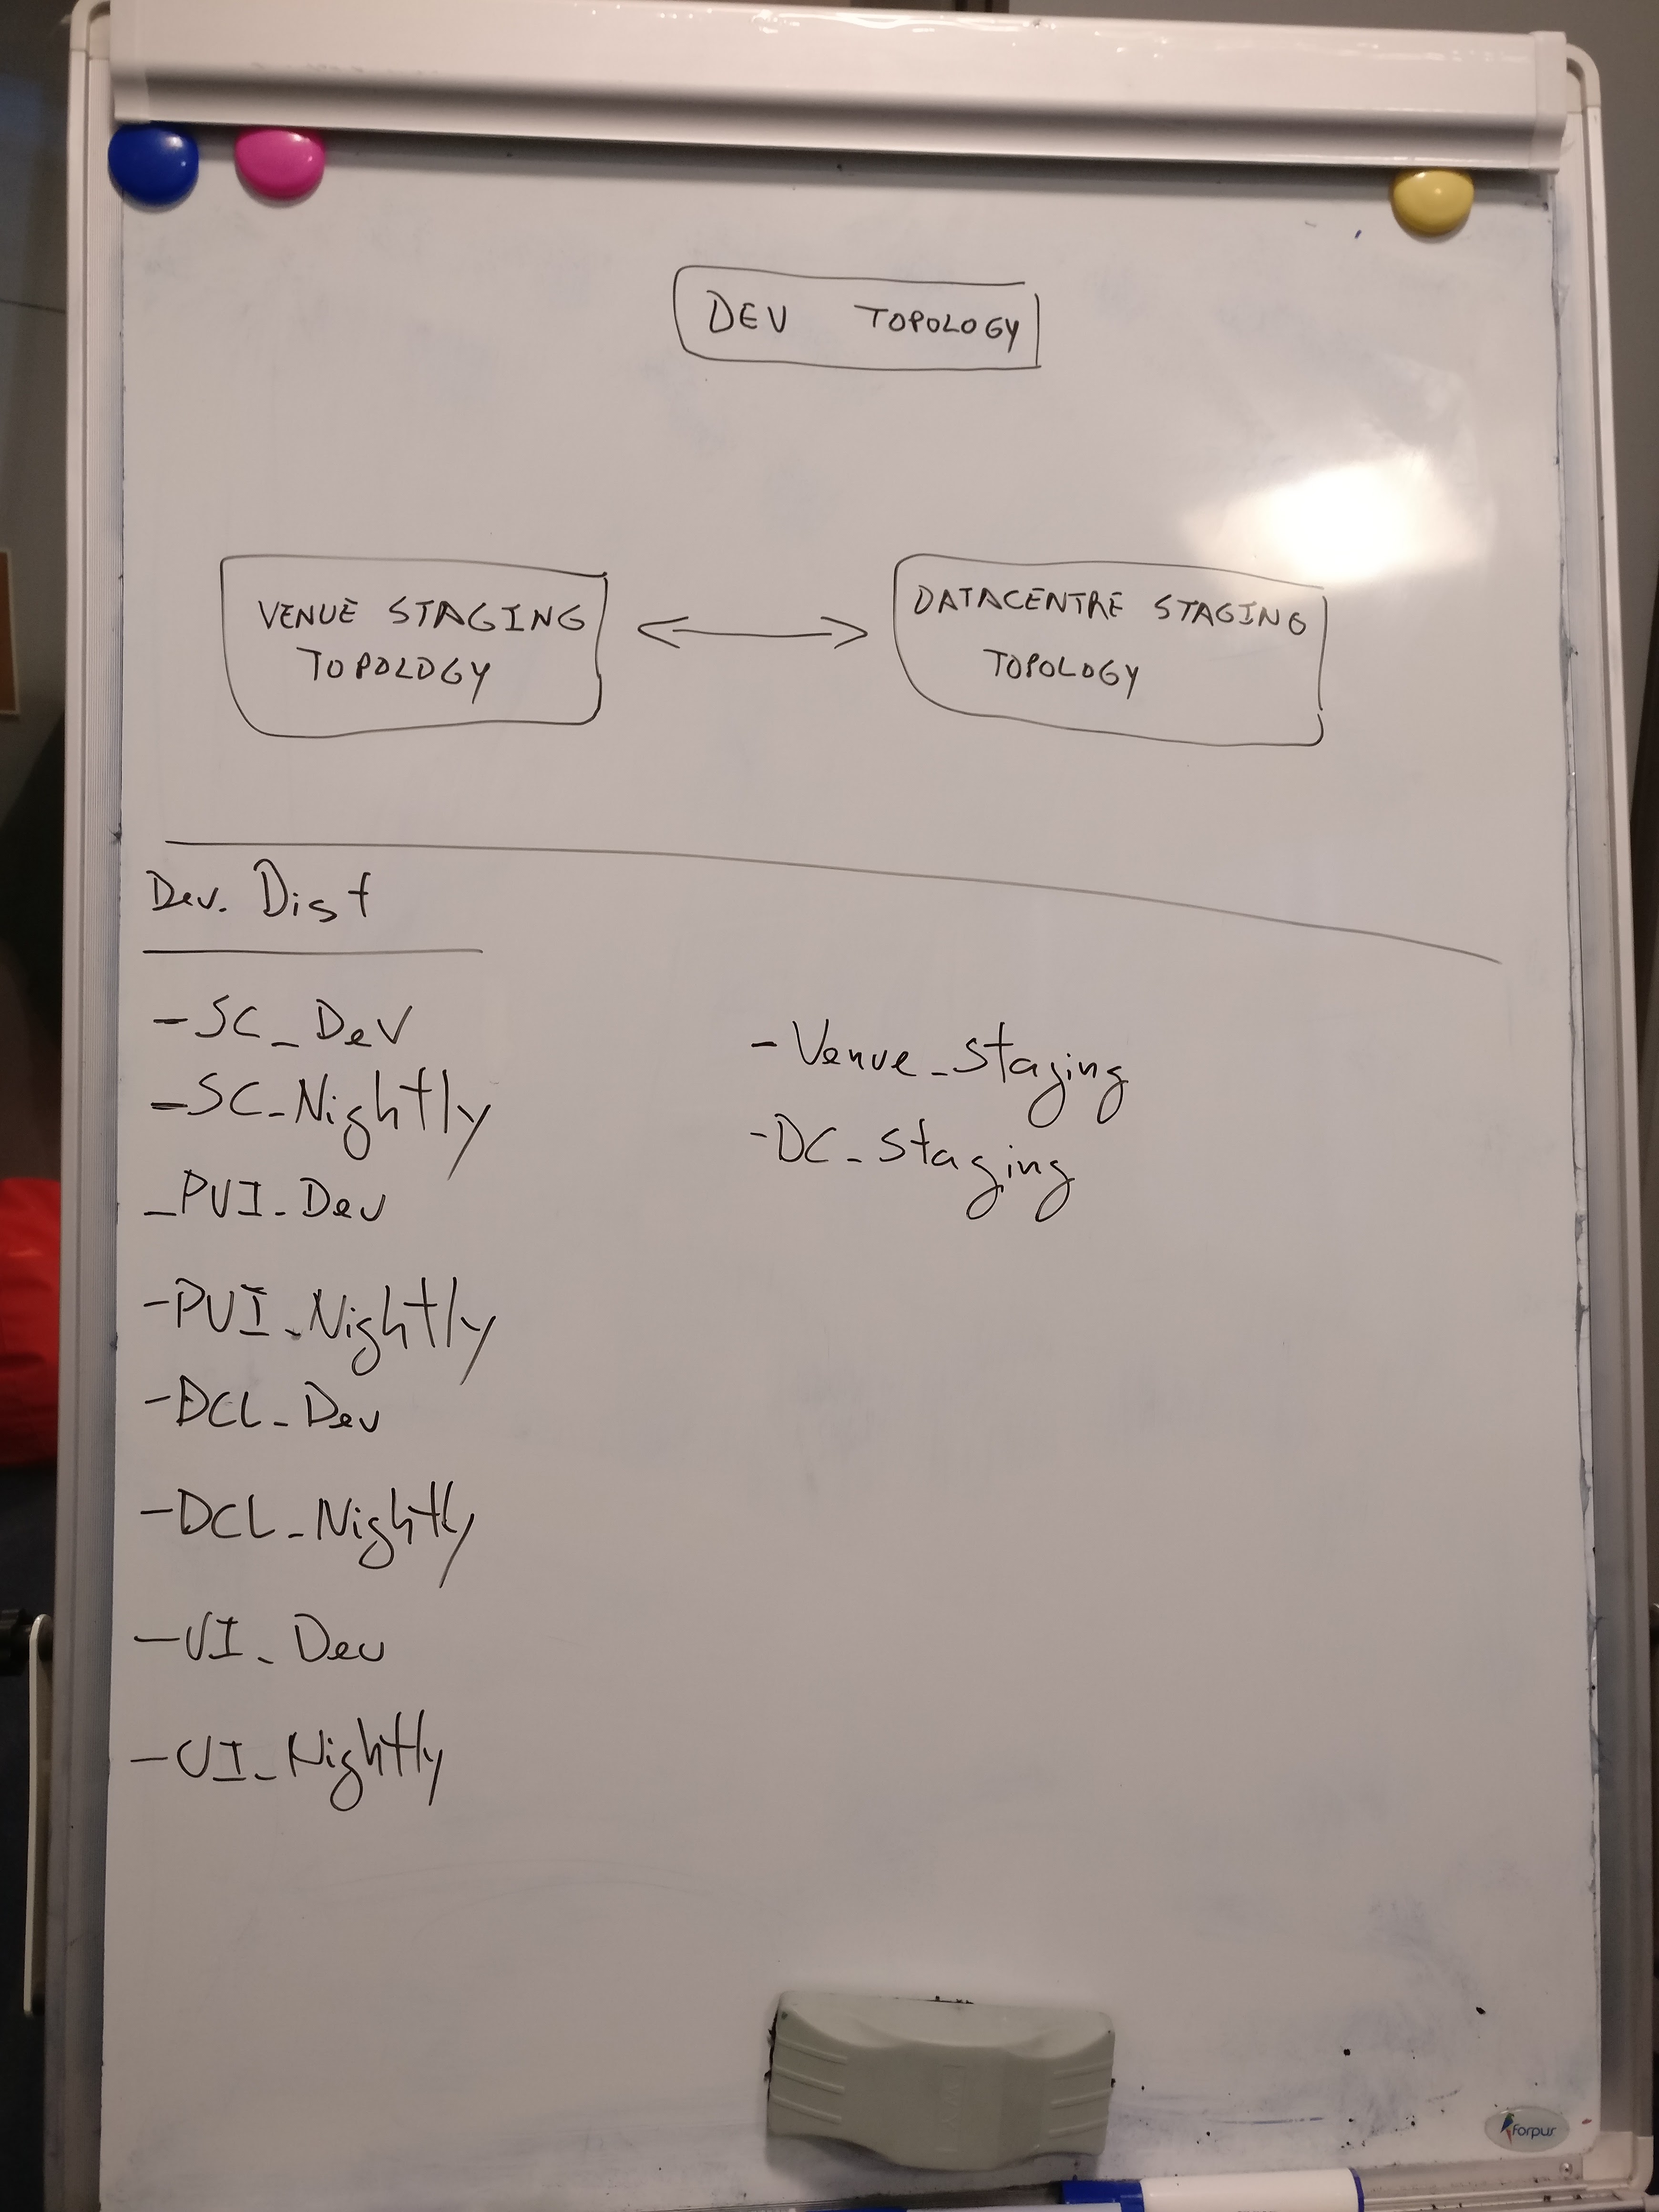 DEV TOPOLOGY
VENUE STAGING
TOPOLOGY
DATACENTRE STAGING
TOPOLOGY
Dev. Dist
- SC_Dev
- SC_Nightly
- PUI_Dev
- PUI_Nightly
- DCL_Dev
- DCL_Nightly
- UI_Dev
- UI_Nightly
- Venue_staging
- DC_staging
forpus